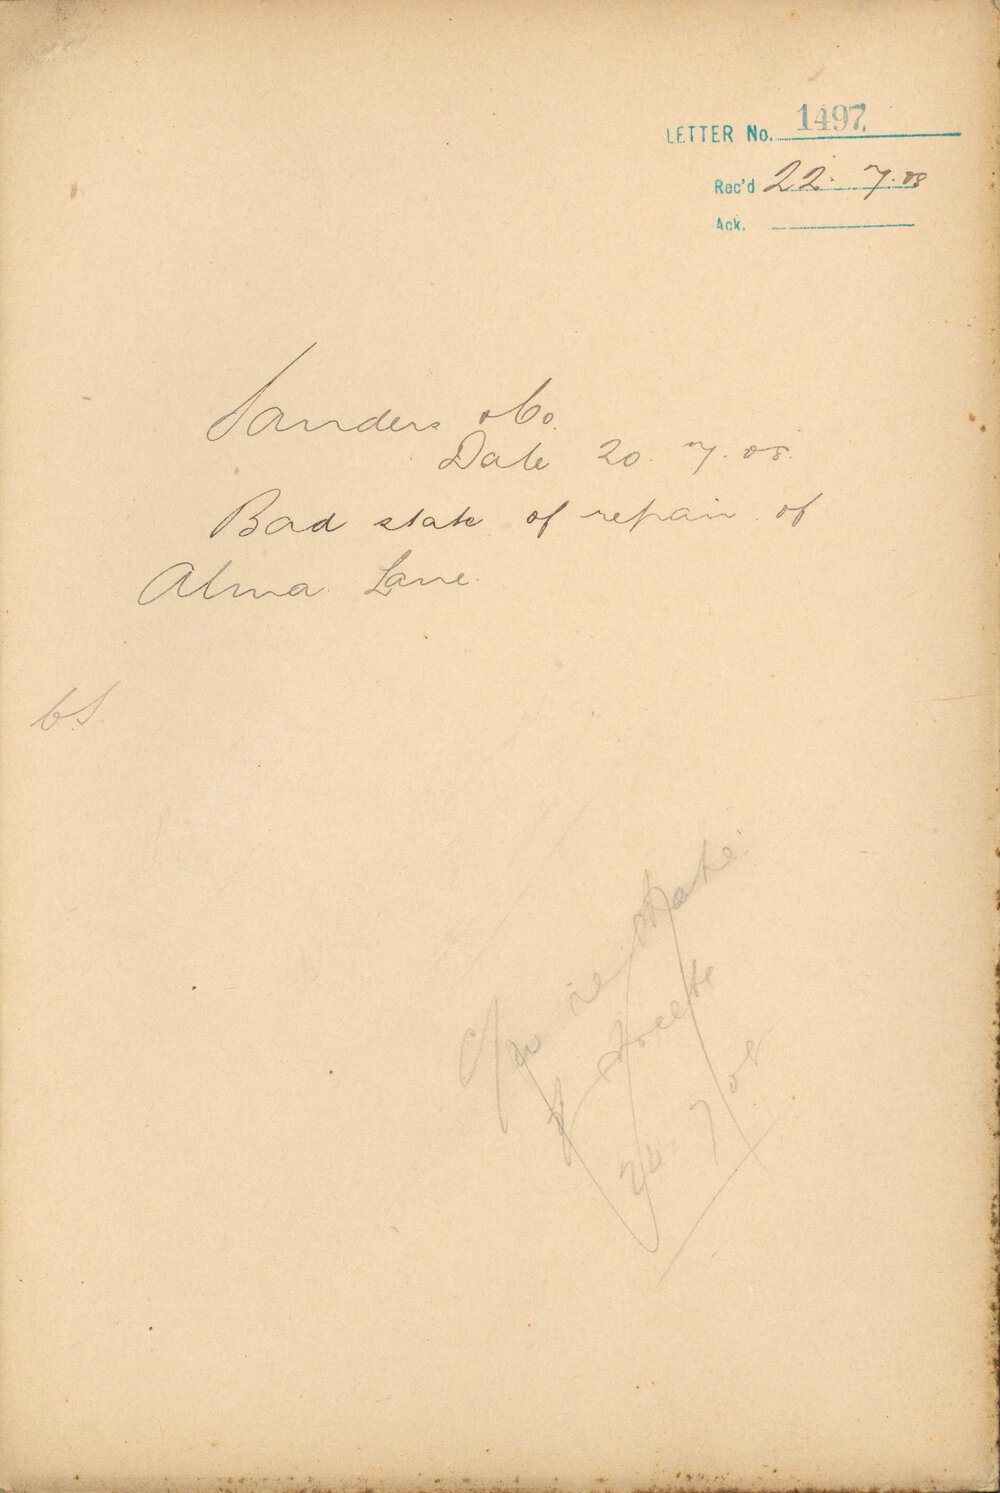 LETTER No. 1497
Rec'd 22. 7. 08
Ack.
Sanders & Co.
Date 20. 7. 08.
Bad state of repair of
Alma Lane.
24. 7 08